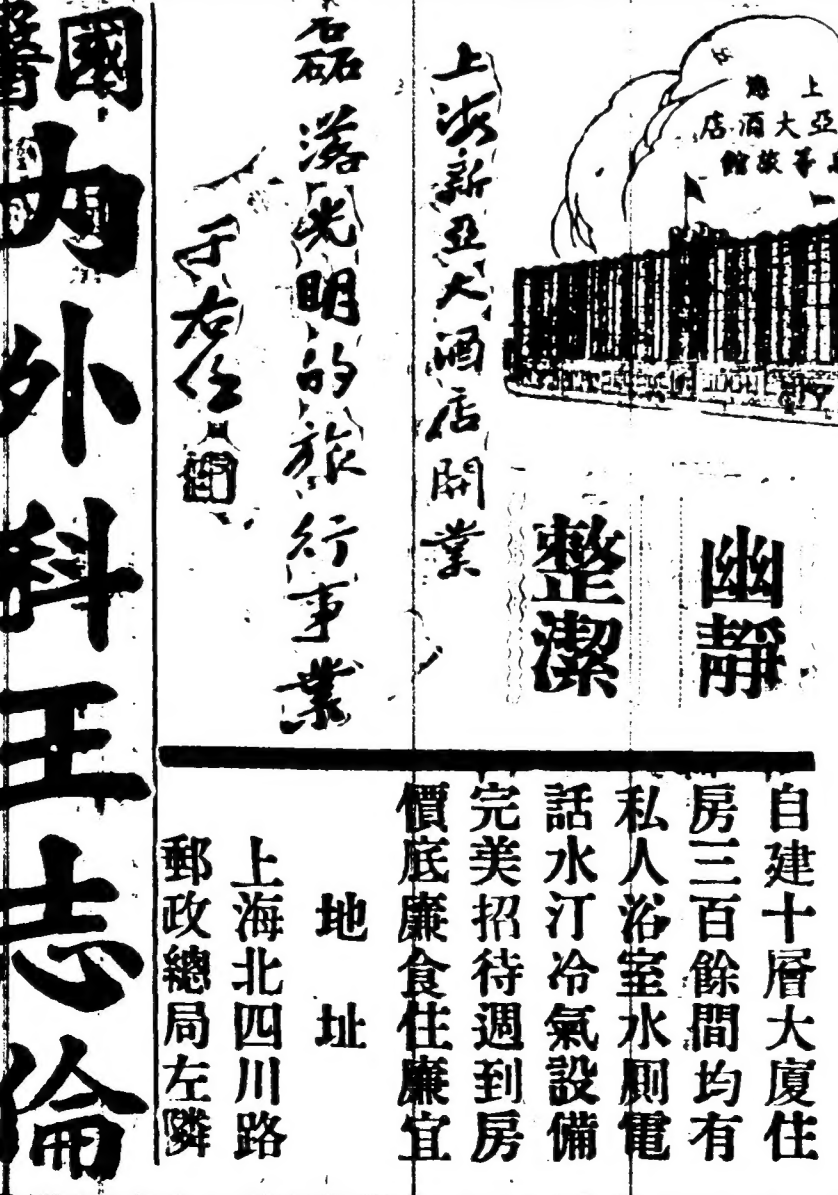 上海
亞大酒店
等旅館
幽靜
整潔
上海新亞大酒店開業
磊落光明的旅行事業
于右任
自建十層大廈住
房三百餘間均有
私人浴室水厠電
話水汀冷氣設備
完美招待週到房
價底廉食住廉宜
地址
上海北四川路
郵政總局左隣
國醫
內外科王志倫